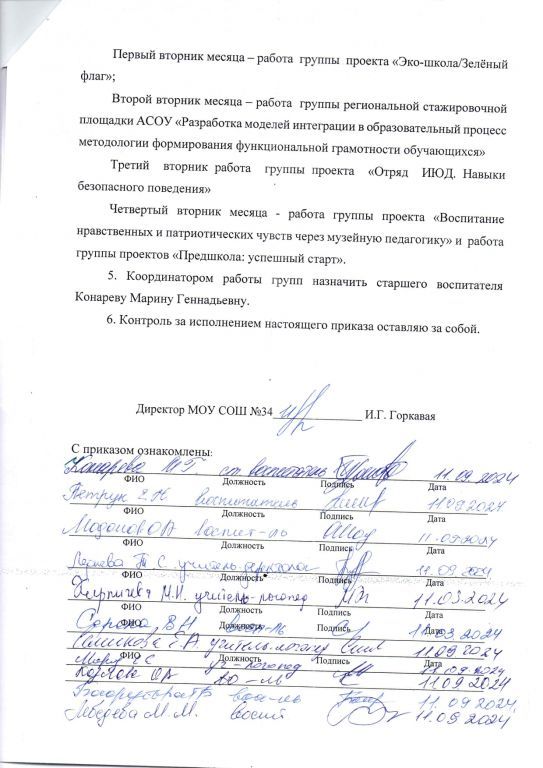 Первый вторник месяца – работа группы проекта «Эко-школа/Зелёный
флаг»;
Второй вторник месяца – работа группы региональной стажировочной
площадки АСОУ «Разработка моделей интеграции в образовательный процесс
методологии формирования функциональной грамотности обучающихся»
Третий вторник работа группы проекта «Отряд ИЮД. Навыки
безопасного поведения»
Четвертый вторник месяца - работа группы проекта «Воспитание
нравственных и патриотических чувств через музейную педагогику» и работа
группы проектов «Предшкола: успешный старт».
5. Координатором работы групп назначить старшего воспитателя
Конареву Марину Геннадьевну.
6. Контроль за исполнением настоящего приказа оставляю за собой.
Директор МОУ СОШ №34 И.Г. Горкавая
С приказом ознакомлены:
Конарева М.Г. ст воспитатель 11.09.2024
ФИО Должность Подпись Дата
Петрук Е.Н. воспитатель 11.09.2024
ФИО Должность Подпись Дата
воспит-ль 11.09.2024
ФИО Должность Подпись Дата
Т. С. учитель-дефектолог 11.09.2024
ФИО Должность Подпись Дата
М.И. учитель-логопед 11.03.2024
ФИО Должность Подпись Дата
В.Н. 11.03.2024
ФИО Должность Подпись Дата
Е.А. учитель-логопед 11.09.2024
ФИО Должность Подпись Дата
Е.С. уч-логопед 11.09.2024
Козлова О.А. 11.09.2024
восп-ль 11.09.2024
Лебедева М.М. воспит 11.09.2024